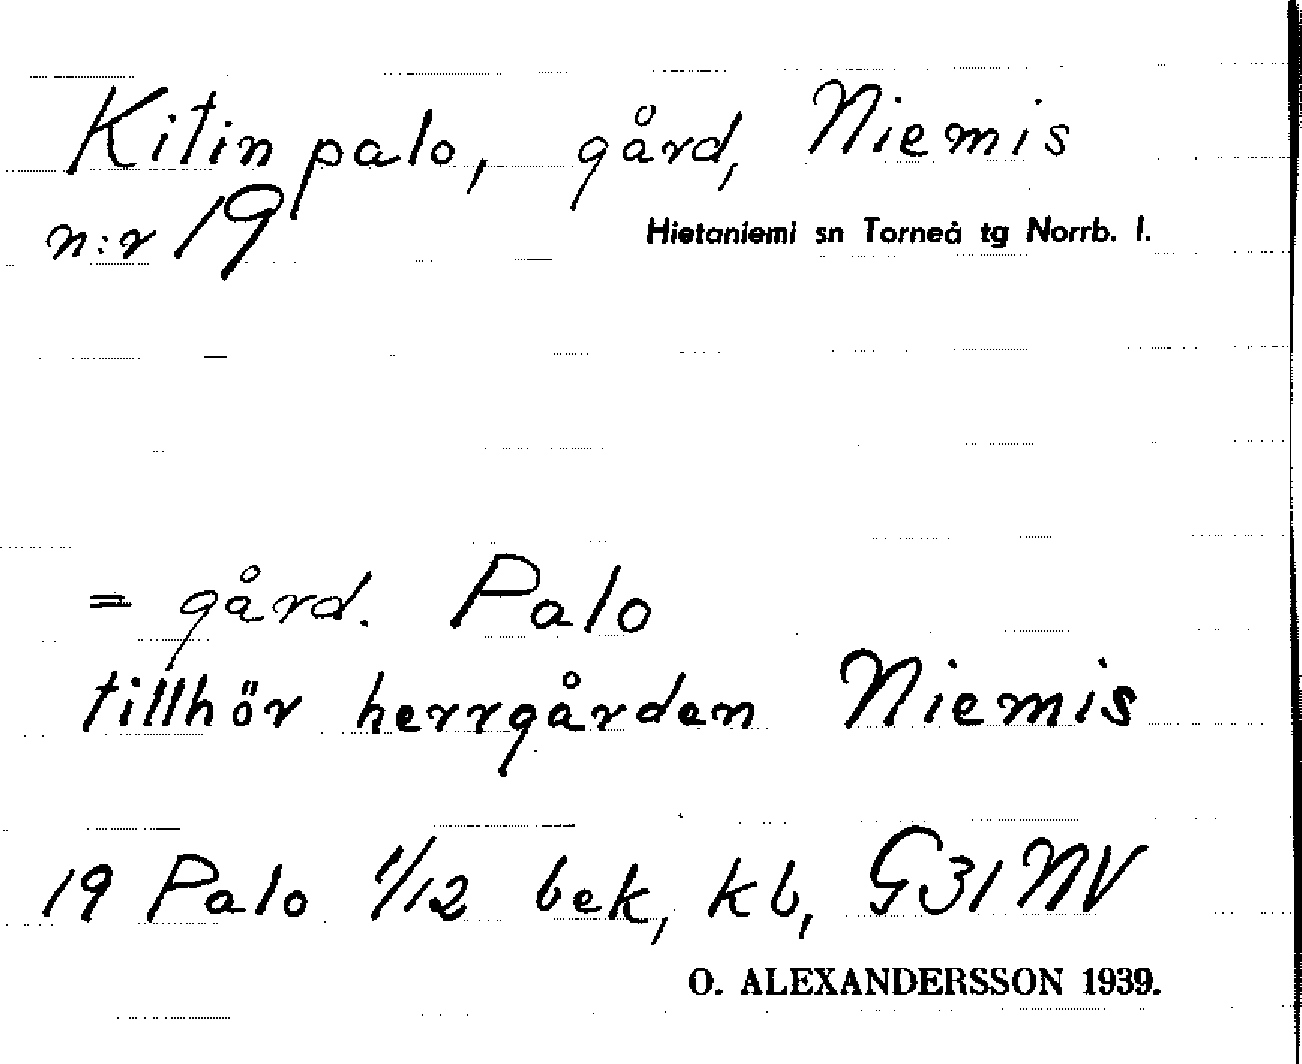 Kitin palo, gård, Niemis
n:r 19
Hietaniemi sn Torneå tg Norrb. l.
= gård. Palo
tillhör herrgården Niemis
19 Palo 1/12 bek, kb, G31NV
O. ALEXANDERSSON 1939.